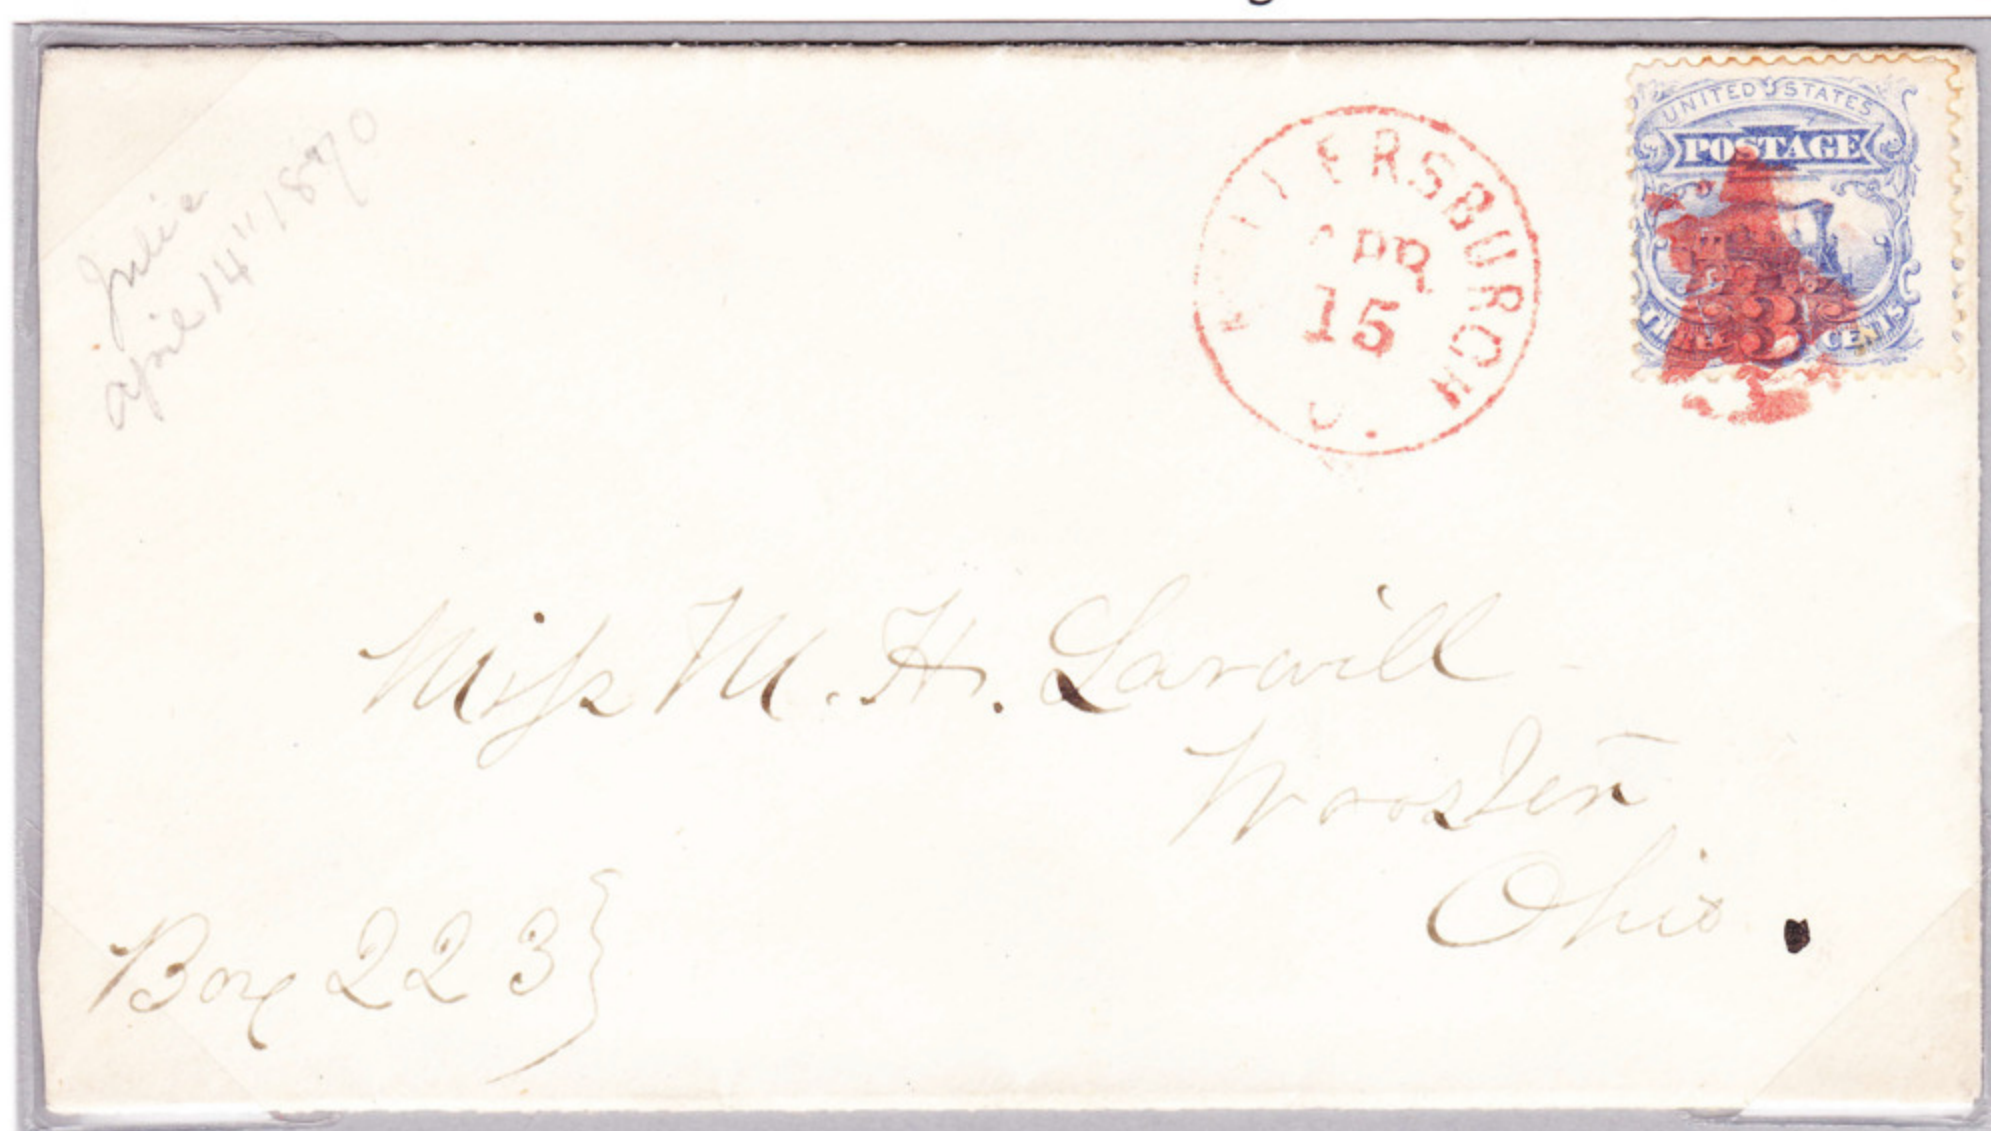 Julia
April 14" 1870
MILLERSBURGH
APR
15
O.
UNITED STATES
POSTAGE
3
THREE CENTS
Miss M. H. Larwill
Wooster
Ohio.
Box 223